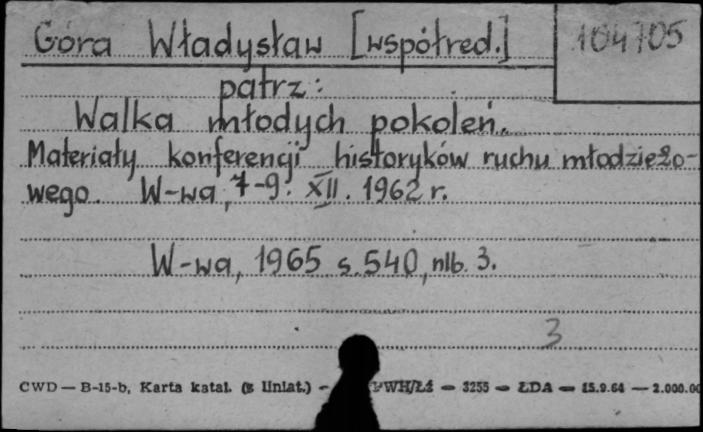 Góra Władysław [współred.] 104705
patrz:
Walka młodych pokoleń.
Materiały konferencji historyków ruchu młodzieżo-
wego. W-wa, 7-9. XII. 1962 r.
W-wa, 1965 s. 540, nlb. 3.
3
CWD — B-15-b, Karta katal. (z liniat.) — PWH/Łd — 3255 — ŁDA — 15.9.64 — 2.000.00